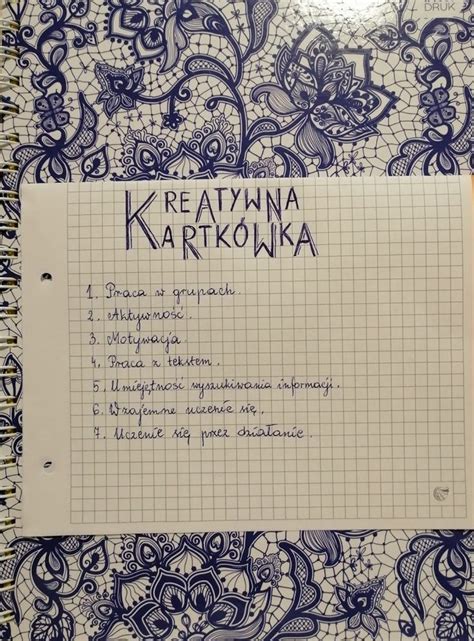 DRUK
KREATYWNA
KARTKÓWKA
1. Praca w grupach.
2. Aktywność.
3. Motywacja.
4. Praca z tekstem.
5. Umiejętność wyszukiwania informacji.
6. Wzajemne uczenie się.
7. Uczenie się przez działanie.